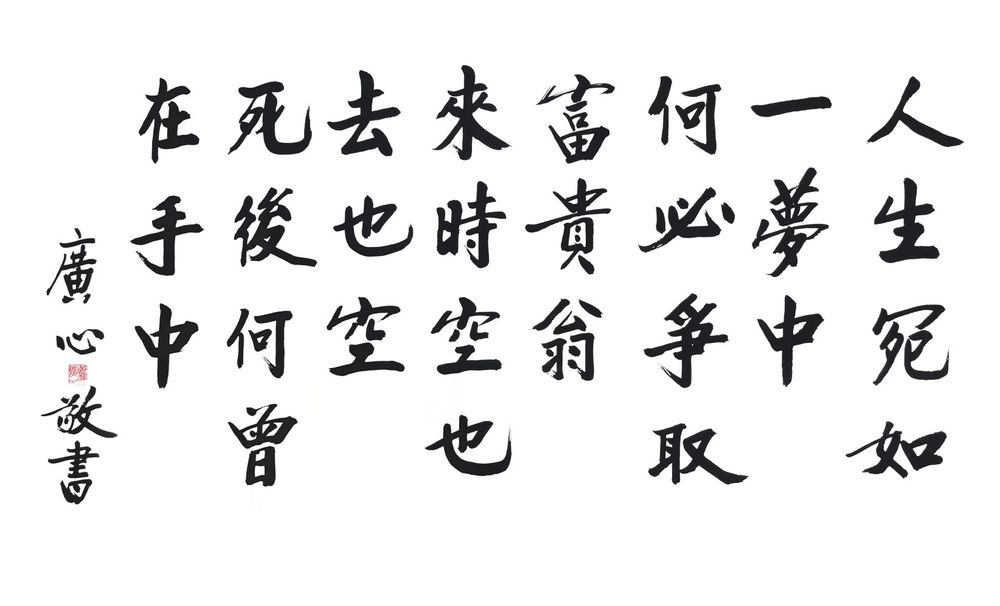 人生宛如
一夢中
何必爭取
富貴翁
來時空也
去也空
死後何曾
在手中
廣心敬書